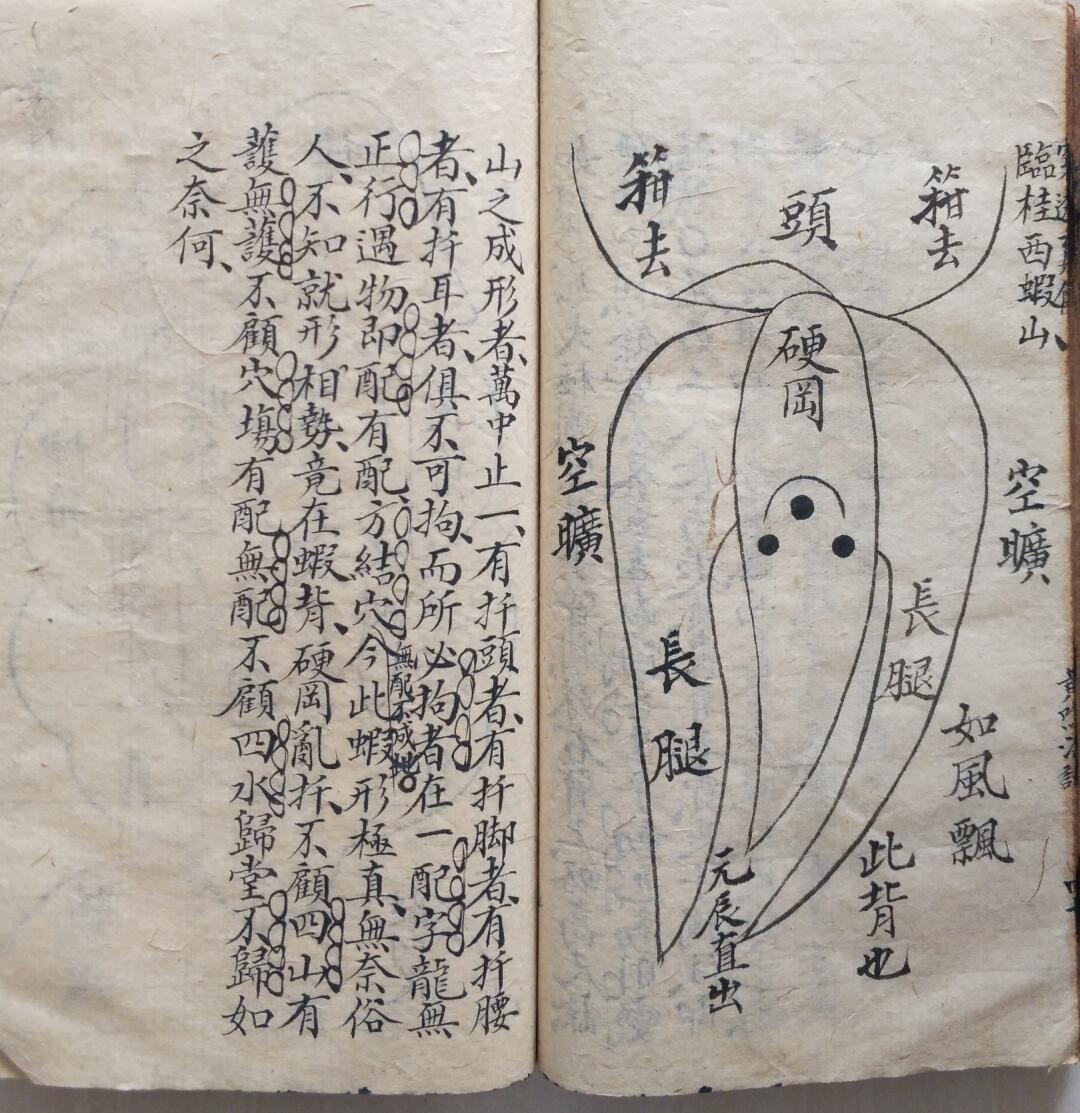 臨桂西蝦山
箝去
頭
箝去
硬岡
空曠
空曠
長腿
長腿
如風飄
此背也
元辰直出
山之成形者、萬中止一、有扦頭者、有扦脚者、有扦腰
者、有扦耳者、俱不可拘、而所必拘者在一配字龍無
正行遇物即配有配方結穴今此蝦形極真、無奈俗
無配不成地
人、不知就形相勢、竟在蝦背、硬岡亂扦、不顧四山有
護無護不顧穴塲有配無配不顧四水歸堂不歸如
之奈何、